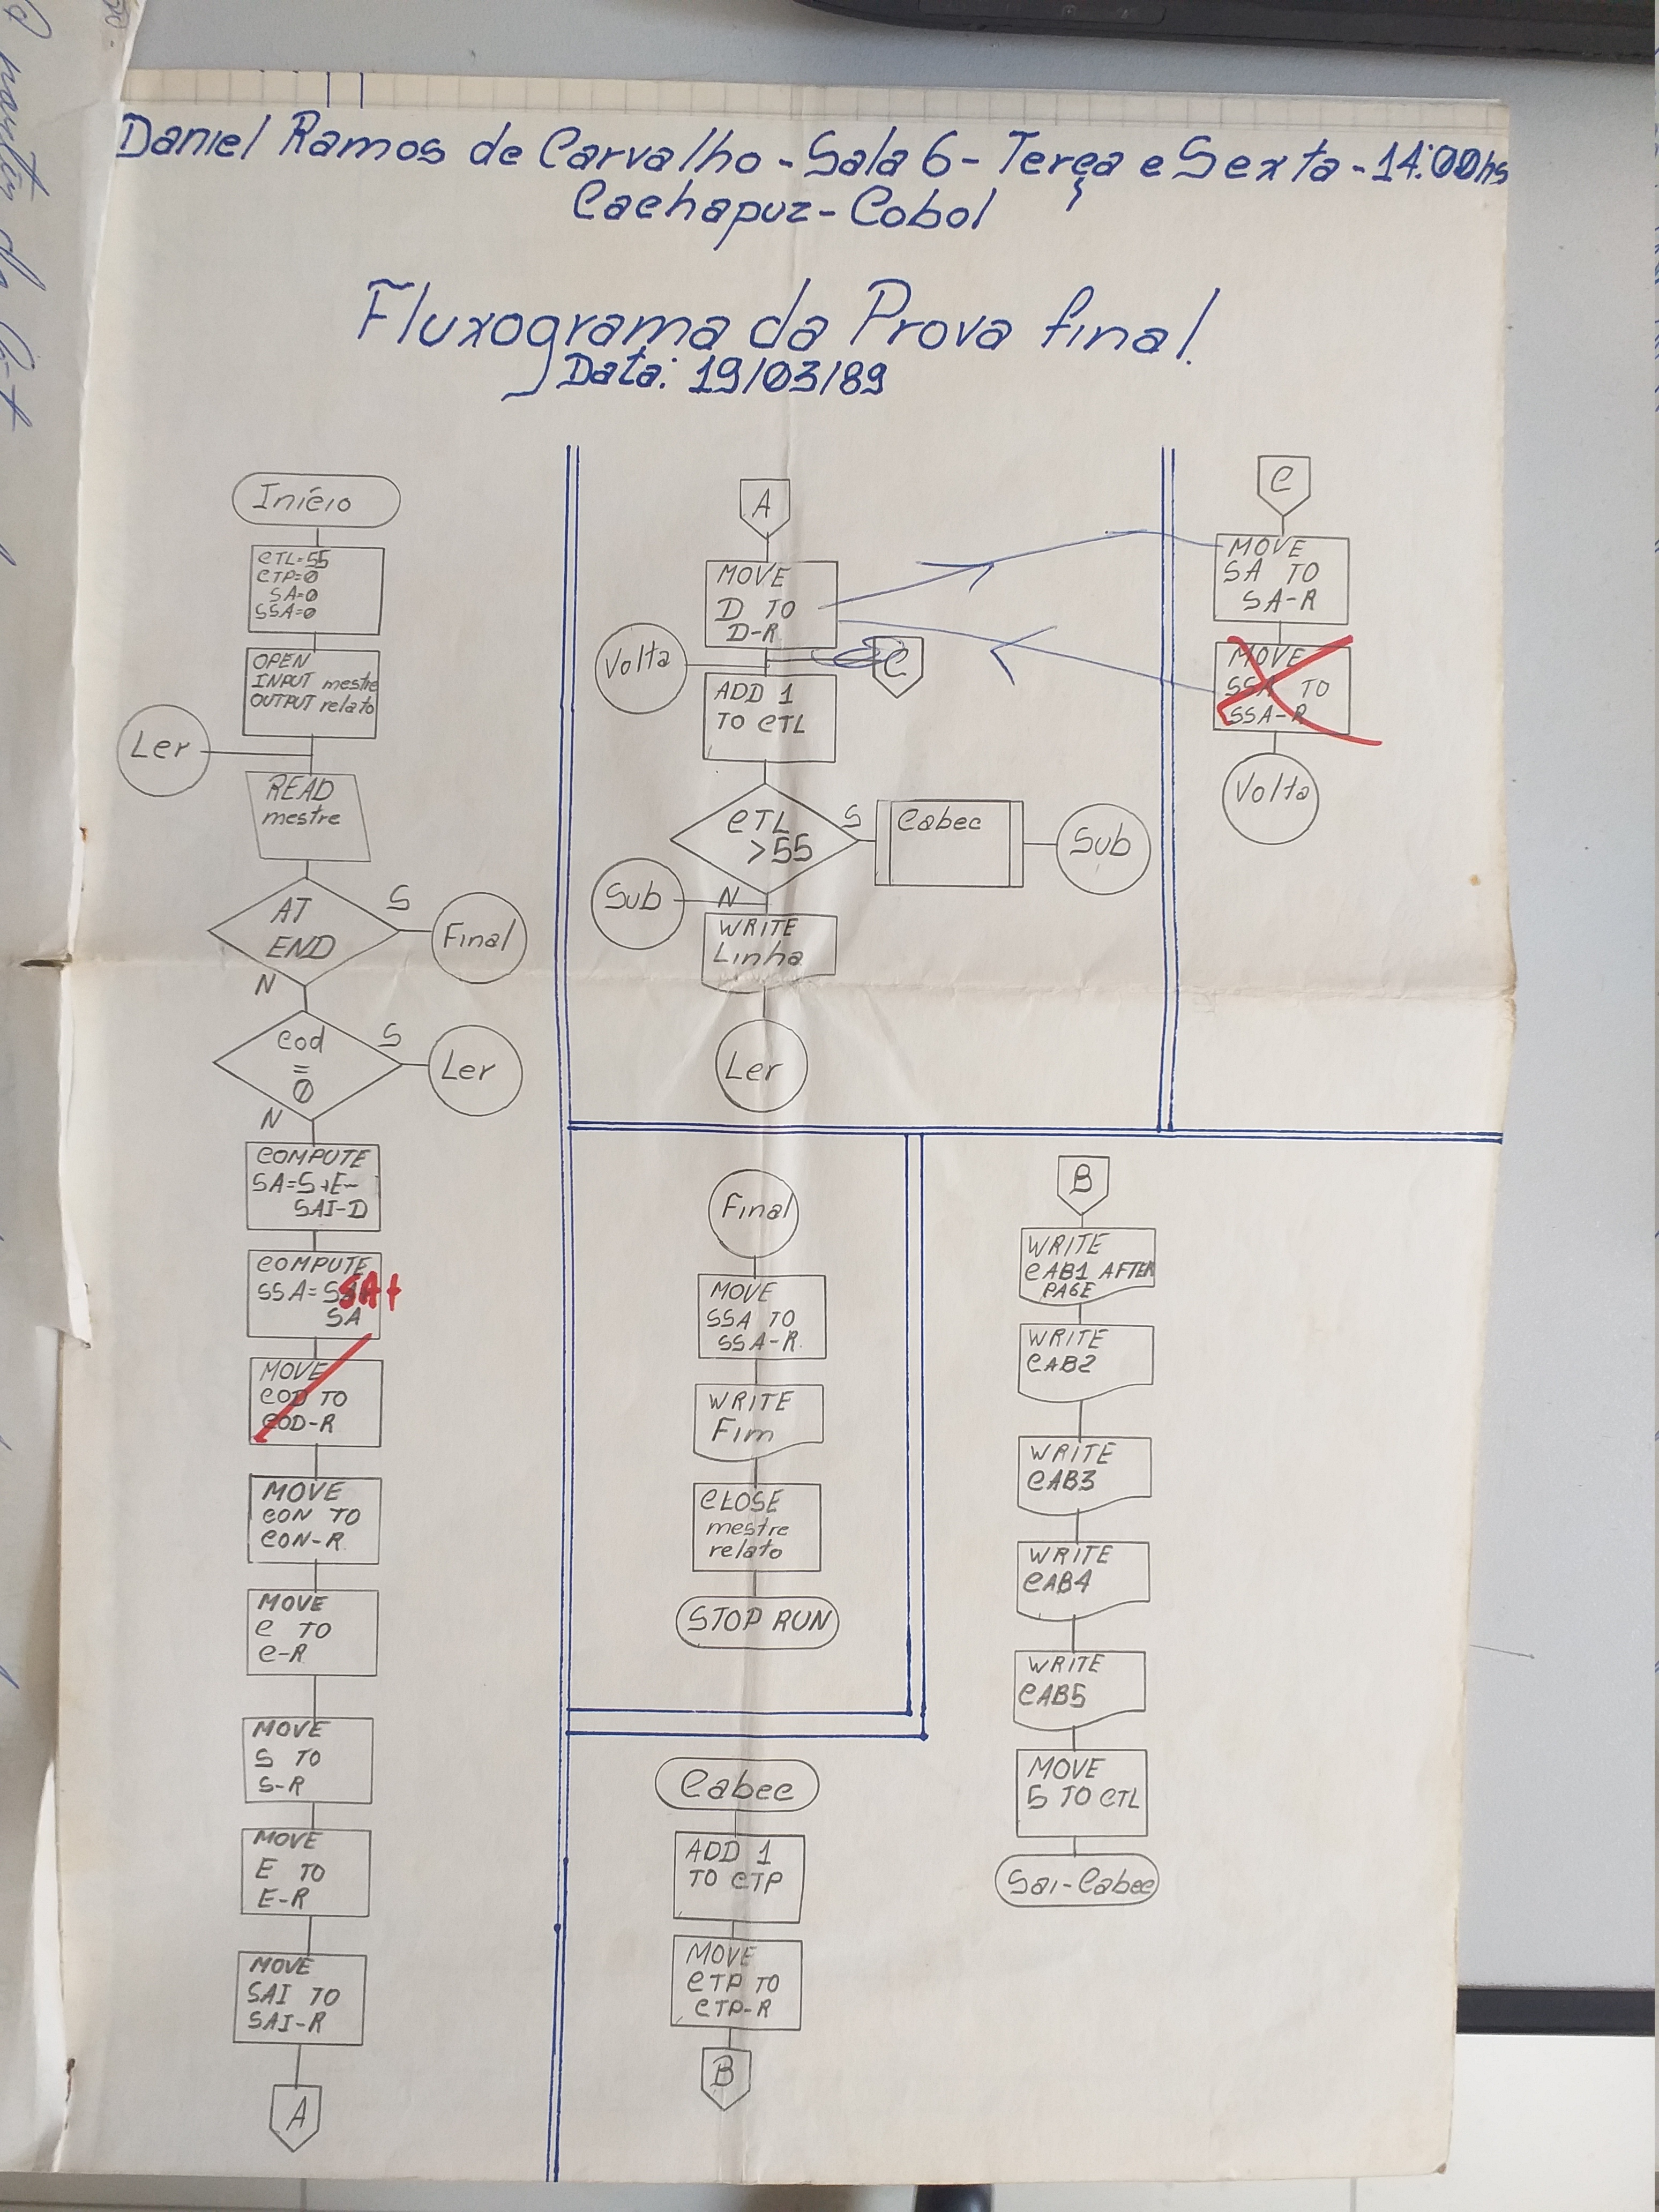 Daniel Ramos de Carvalho - Sala 6 - Terça e Sexta - 14:00hs
Cachapuz - Cobol
Fluxograma da Prova final
Data: 19/03/89
Início
CTL=55
CTP=0
SA=0
SSA=0
OPEN
INPUT mestre
OUTPUT relato
Ler
READ
mestre
AT
END
S
Final
N
Cod
=
0
S
Ler
N
COMPUTE
SA=S+E-
SAI-D
COMPUTE
SSA=SSA+
SA
MOVE
COD TO
COD-R
MOVE
CON TO
CON-R
MOVE
C TO
C-R
MOVE
S TO
S-R
MOVE
E TO
E-R
MOVE
SAI TO
SAI-R
A
A
MOVE
D TO
D-R
Volta
C
ADD 1
TO CTL
CTL
>55
S
Cabec
Sub
Sub
N
WRITE
Linha
Ler
C
MOVE
SA TO
SA-R
MOVE
SSA TO
SSA-R
Volta
Final
MOVE
SSA TO
SSA-R
WRITE
Fim
CLOSE
mestre
relato
STOP RUN
Cabec
ADD 1
TO CTP
MOVE
CTP TO
CTP-R
B
B
WRITE
CAB1 AFTER
PAGE
WRITE
CAB2
WRITE
CAB3
WRITE
CAB4
WRITE
CAB5
MOVE
5 TO CTL
Sai-Cabec